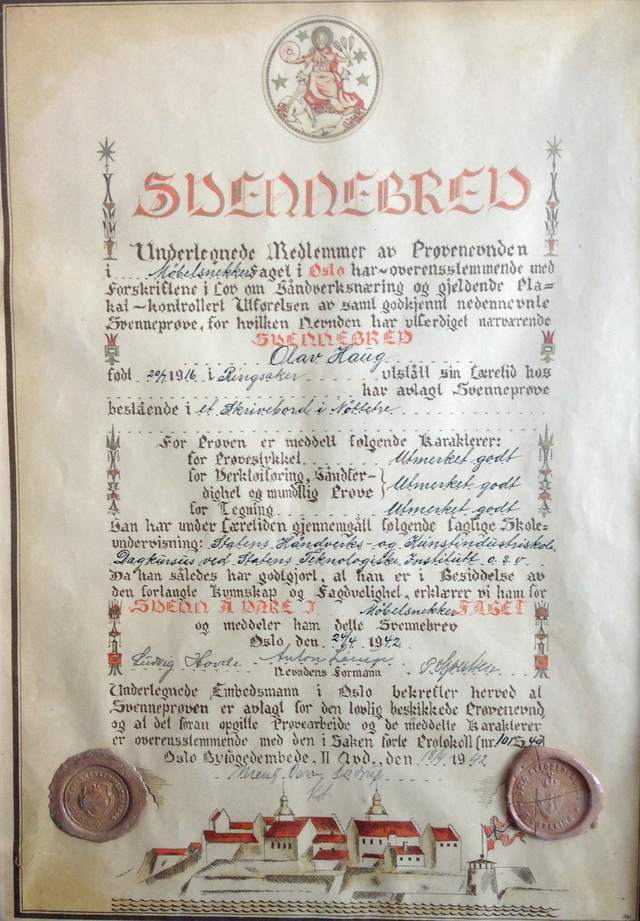 SVENNEBREV
Underlegnede Medlemmer av Prøvenevnden
i Møbelsnekker Faget i Oslo har overensstemmende med
Forskriftene i Lov om Håndverksnæring og gjeldende Pla-
kat - kontrollert Utførelsen av samt godkjent nedennevnte
Svenneprøve, for hvilken Nevnden har utferdiget nærværende
SVENNEBREV
Olav Haug
født 20/7 1916 i Ringsaker utstått sin Læretid hos
har avlagt Svenneprøve
bestående i et Skrivebord i Nøttetre
For Prøven er meddelt følgende Karakterer:
for Prøvestykket Utmerket godt
for Verktøiføring, Håndfer-
dighet og mundtlig Prøve } Utmerket godt
for Tegning Utmerket godt
Han har under Læretiden gjennemgått følgende faglige Skole-
undervisning: Statens Håndverks- og Kunstindustriskole,
Dagkursus ved Statens Teknologiske Institutt o.s.v.
Da han således har godtgjort, at han er i Besiddelse av
den forlangte Kunnskap og Fagdyelighet, erklærer vi ham for
SVENN Å VÆRE I Møbelsnekker FAGET
og meddeler ham dette Svennebrev
Oslo, den 24/4 1942
Ludvig Hovde Anton
Nevndens Formann
Underlegnede Embedsmann i Oslo bekrefter herved at
Svenneprøven er avlagt for den lovlig beskikkede Prøvenevnd,
og at det foran opgitte Prøvearbeide og de meddelte Karakterer
er overensstemmende med den i Saken førte Protokoll (nr.
Oslo Byfogedembede, II Avd., den 18/4 1942